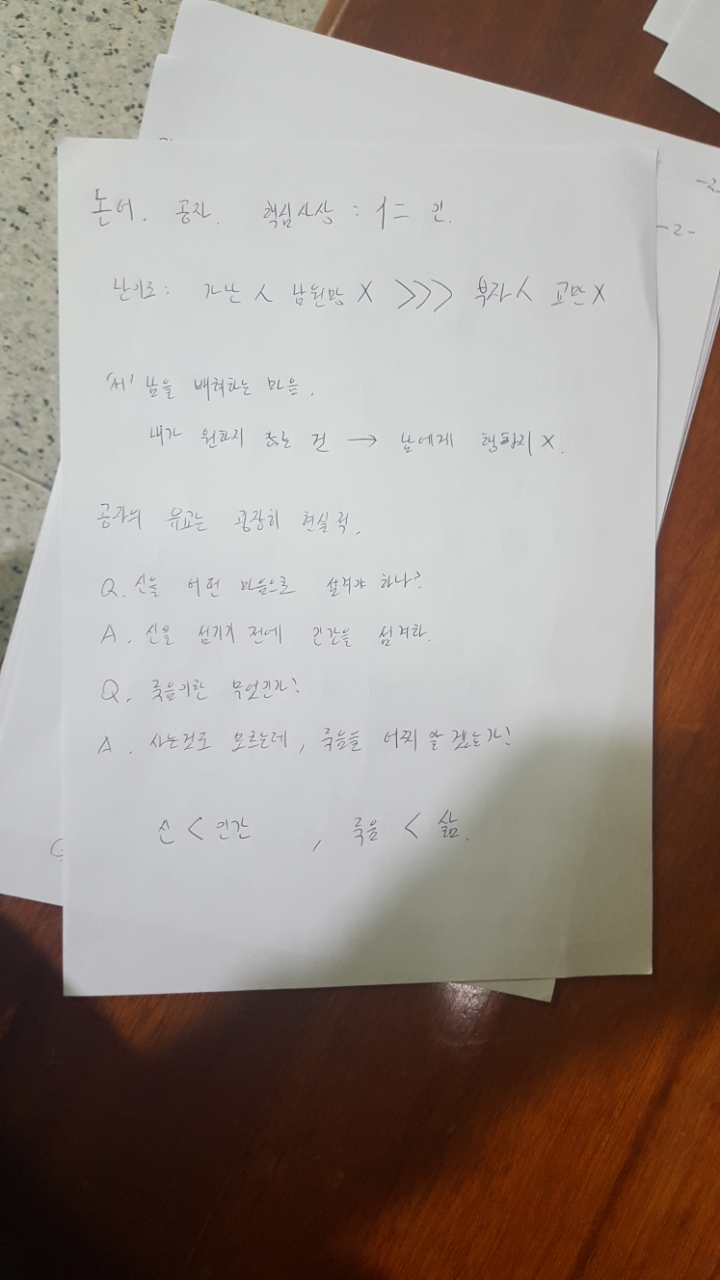 논어. 공자. 핵심사상 : 仁 인.
난이도 : 가난 人 남원망 X >>> 부자人 교만 X
'서' 남을 배려하는 마음.
내가 원하지 않는 건 → 남에게 행하지 X.
공자의 유교는 굉장히 현실적.
Q. 신을 어떤 마음으로 섬겨야 하나?
A. 신을 섬기기 전에 인간을 섬겨라.
Q. 죽음이란 무엇인가?
A. 사는것도 모르는데, 죽음을 어찌 알겠는가!
신 < 인간 , 죽음 < 삶.
-2
-2-